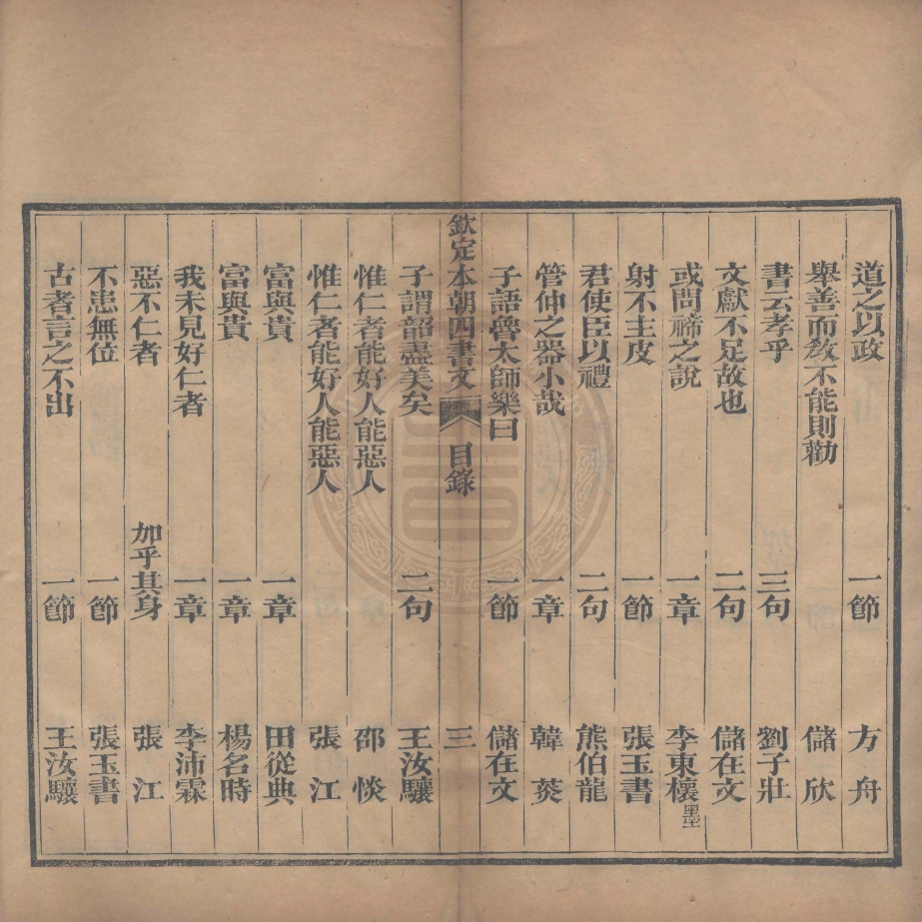 道之以政 一節 方舟
舉善而敎不能則勸 儲欣
書云孝乎 三句 劉子壯
文獻不足故也 二句 儲在文
或問禘之說 一章 李東櫰墨
射不主皮 一節 張玉書
君使臣以禮 二句 熊伯龍
管仲之器小哉 一章 韓菼
子語魯太師樂曰 一節 儲在文
欽定本朝四書文 目錄 三
子謂韶盡美矣 二句 王汝驤
惟仁者能好人能惡人 邵惔
惟仁者能好人能惡人 張江
富與貴 一章 田從典
富與貴 一章 楊名時
我未見好仁者 一章 李沛霖
惡不仁者 加乎其身 張江
不患無位 一節 張玉書
古者言之不出 一節 王汝驤